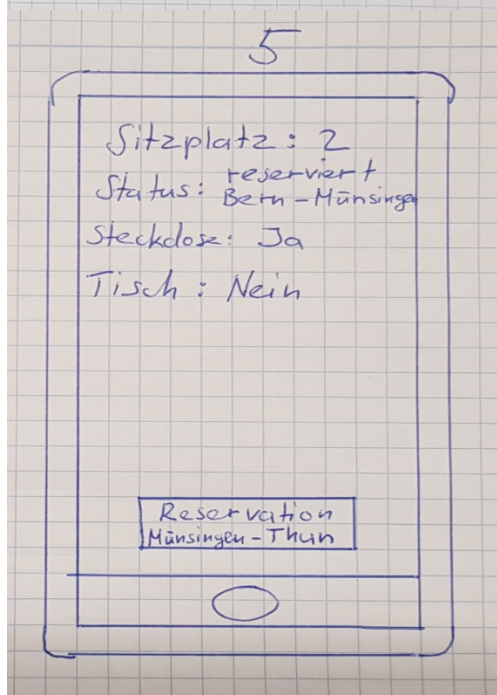 5
Sitzplatz: 2
Status: reserviert
Bern - Münsingen
Steckdose: Ja
Tisch: Nein
Reservation
Münsingen - Thun